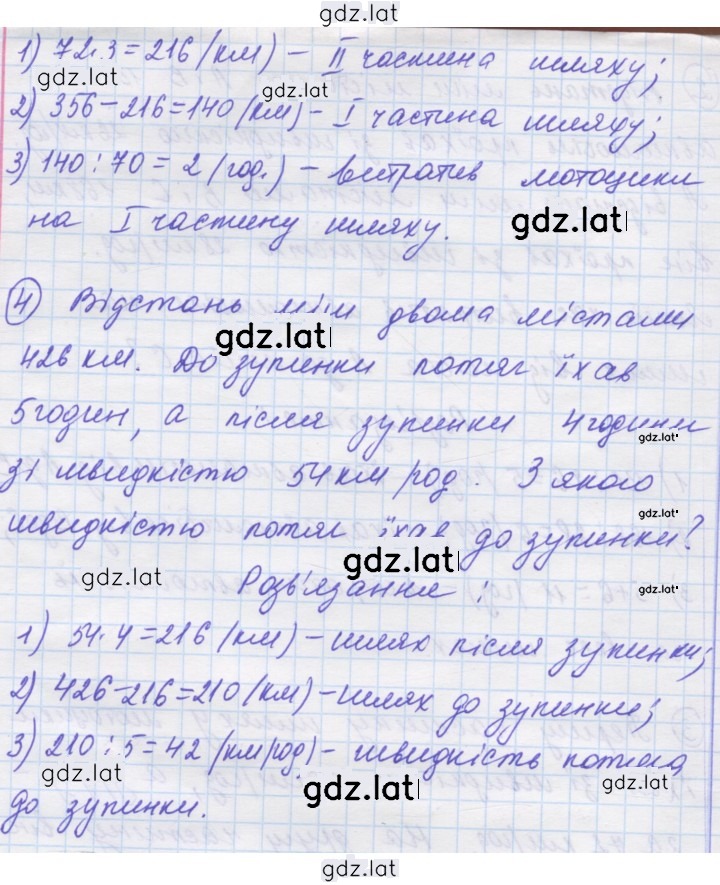 gdz.lat
1) 72·3=216 (км) – II частина шляху;
gdz.lat gdz.lat
2) 356–216=140 (км) – I частина шляху;
3) 140:70= 2 (год.) – витратив мотоцикл
на I частину шляху. gdz.lat
④ Відстань між двома містами
gdz.lat
426 км. До зупинки потяг їхав
5 годин, а після зупинки 4 години
gdz.lat
зі швидкістю 54 км/год. З якою
gdz.lat
швидкістю потяг їхав до зупинки?
gdz.lat gdz.lat gdz.lat
Розв'язання:
1) 54·4=216 (км) – шлях після зупинки;
2) 426–216=210 (км) – шлях до зупинки;
3) 210:5=42 (км/год) – швидкість потяга
gdz.lat gdz.lat gdz.lat
до зупинки.
gdz.lat